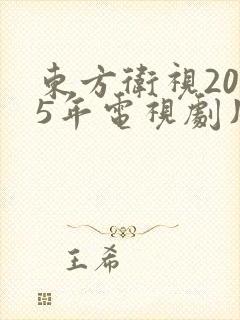 東方衛視20
5年電視劇
王希